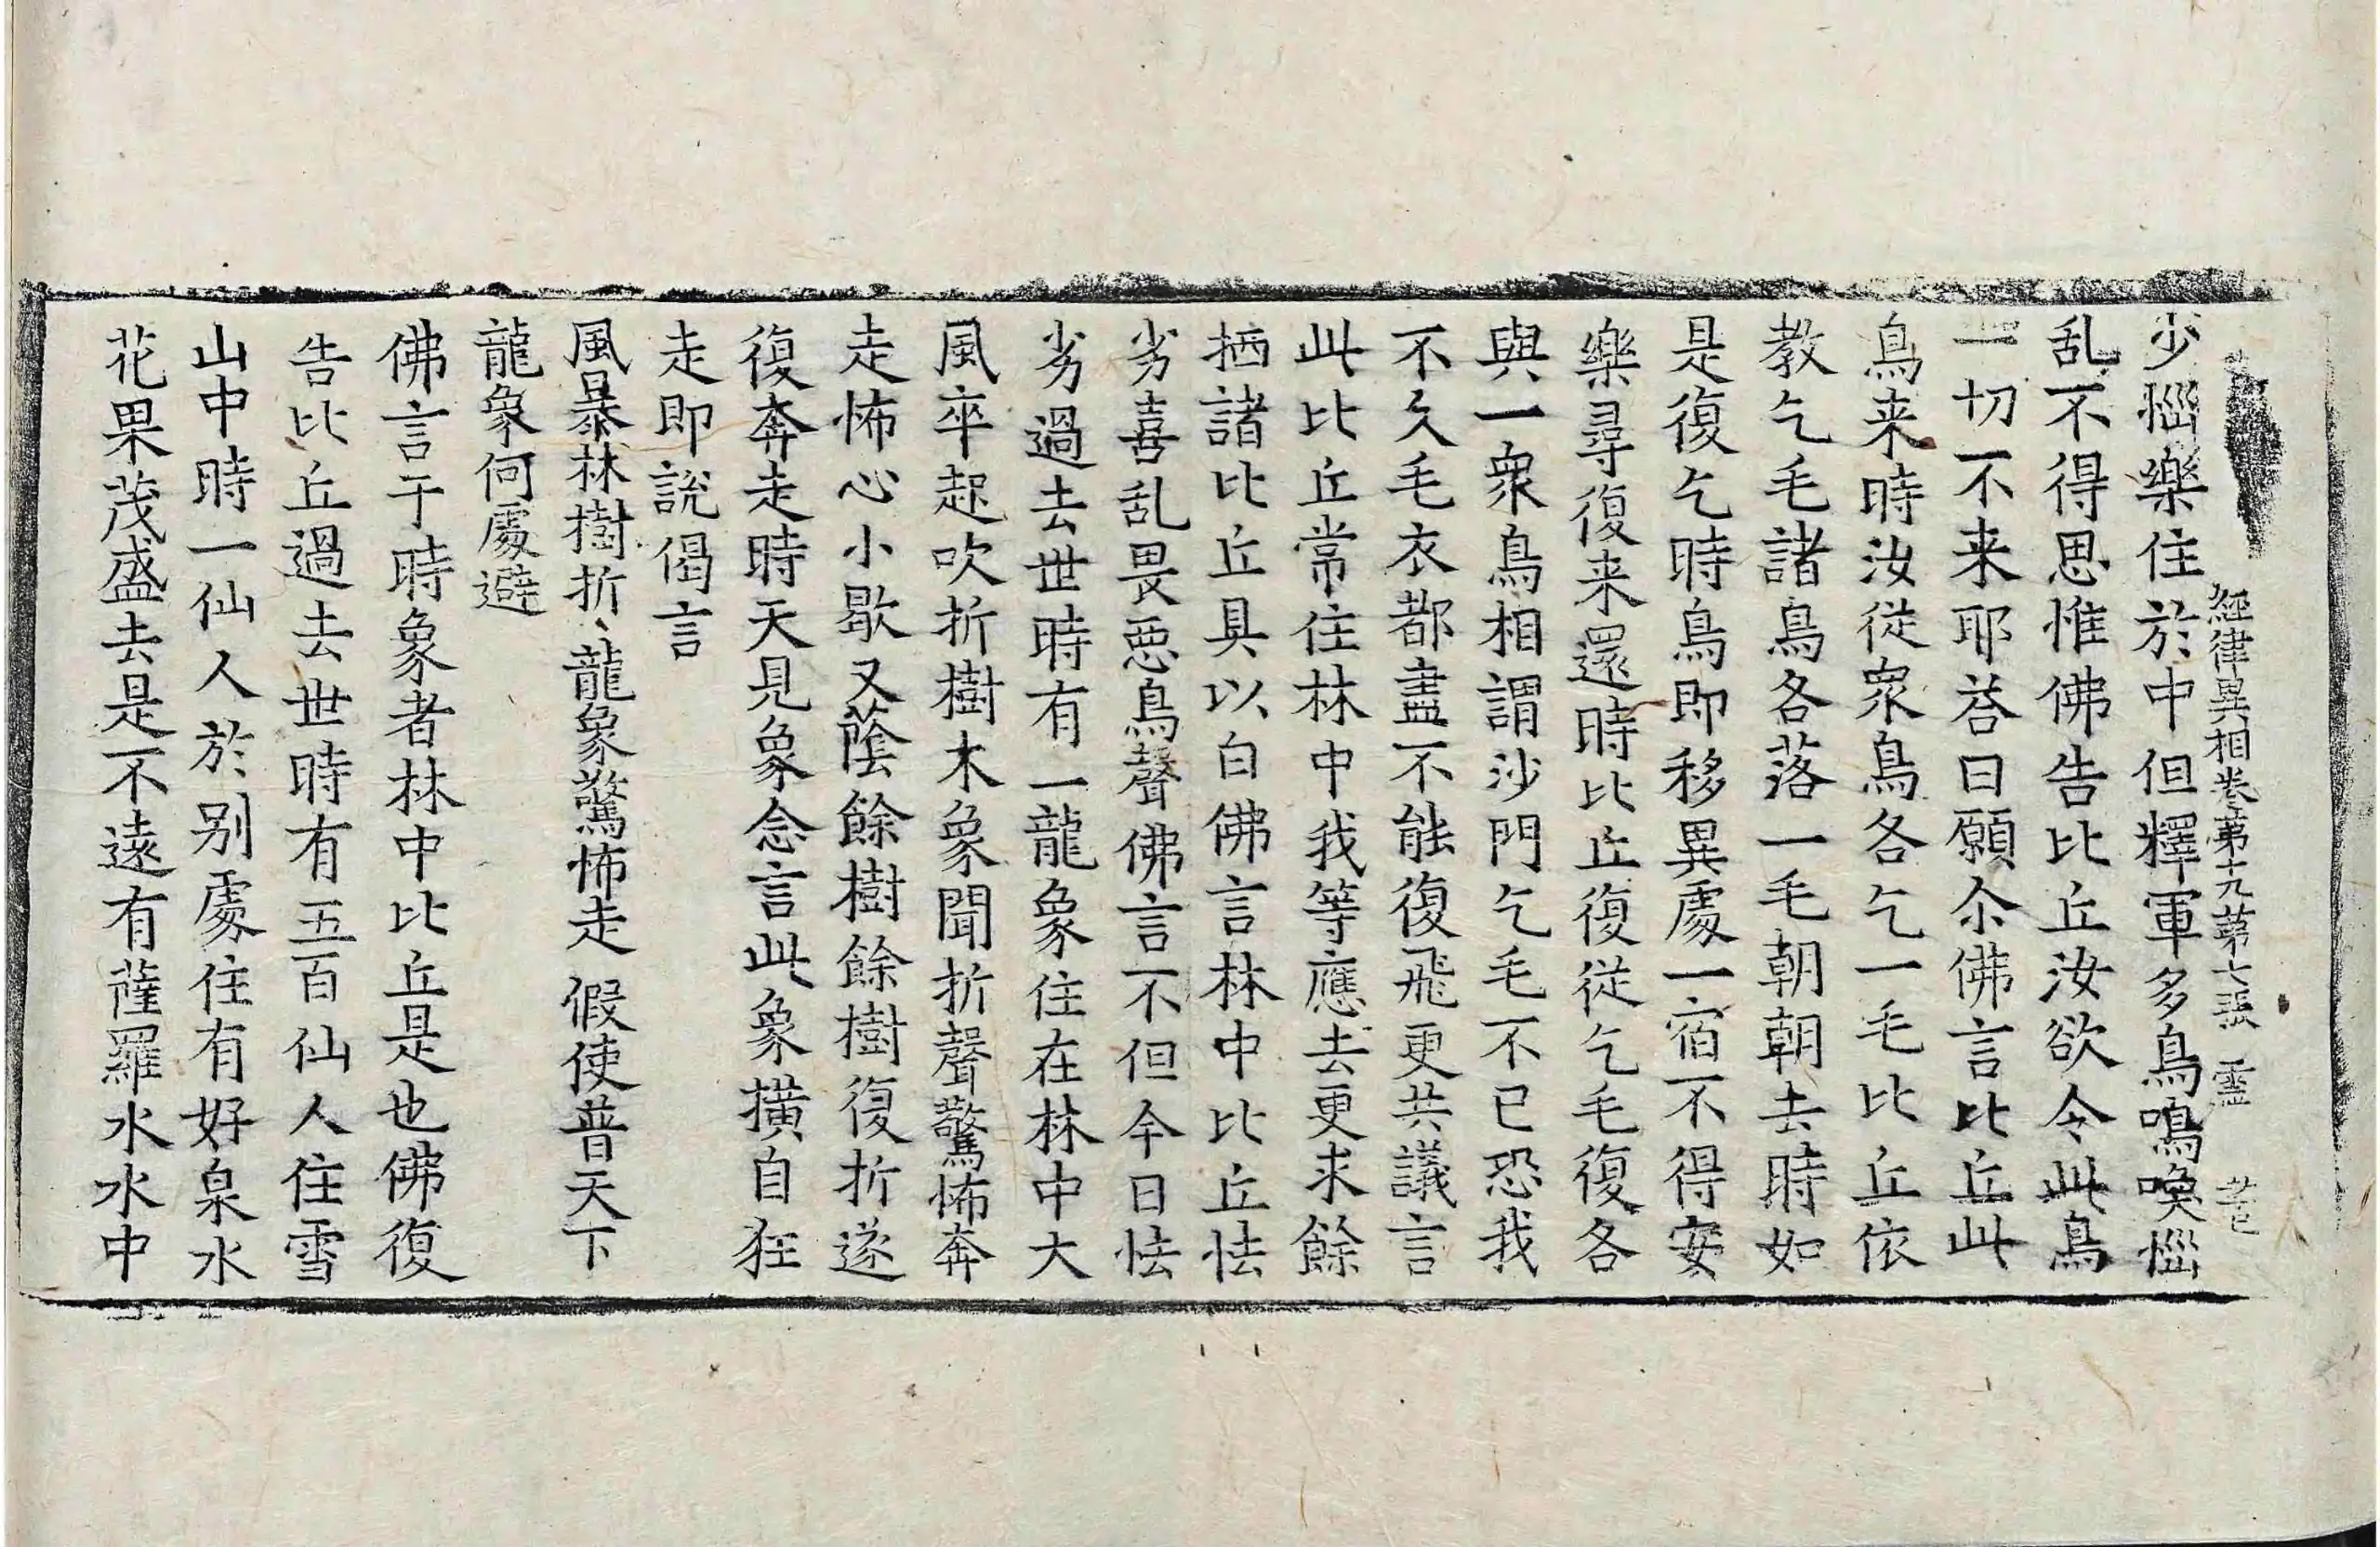 經律異相卷第十九第七張 靈
少惱樂住於中但釋軍多鳥鳴喚惱
乱不得思惟佛告比丘汝欲令此鳥
一切不来耶荅曰願尒佛言比丘此
鳥来時汝從衆鳥各乞一毛比丘依
教乞毛諸鳥各落一毛朝朝去時如
是復乞時鳥即移異處一宿不得安
樂尋復来還時比丘復從乞毛復各
與一衆鳥相謂沙門乞毛不已恐我
不久毛衣都盡不能復飛更共議言
此比丘常住林中我等應去更求餘
栖諸比丘具以白佛言林中比丘怯
劣喜乱畏惡鳥聲佛言不但今日怯
劣過去世時有一龍象住在林中大
風卒起吹折樹木象聞折聲驚怖奔
走怖心小歇又蔭餘樹餘樹復折遂
復奔走時天見象念言此象撗自狂
走即說偈言
風暴林樹折 龍象驚怖走 假使普天下
龍象何處避
佛言于時象者林中比丘是也佛復
告比丘過去世時有五百仙人住雪
山中時一仙人於别處住有好泉水
花果茂盛去是不遠有薩羅水水中